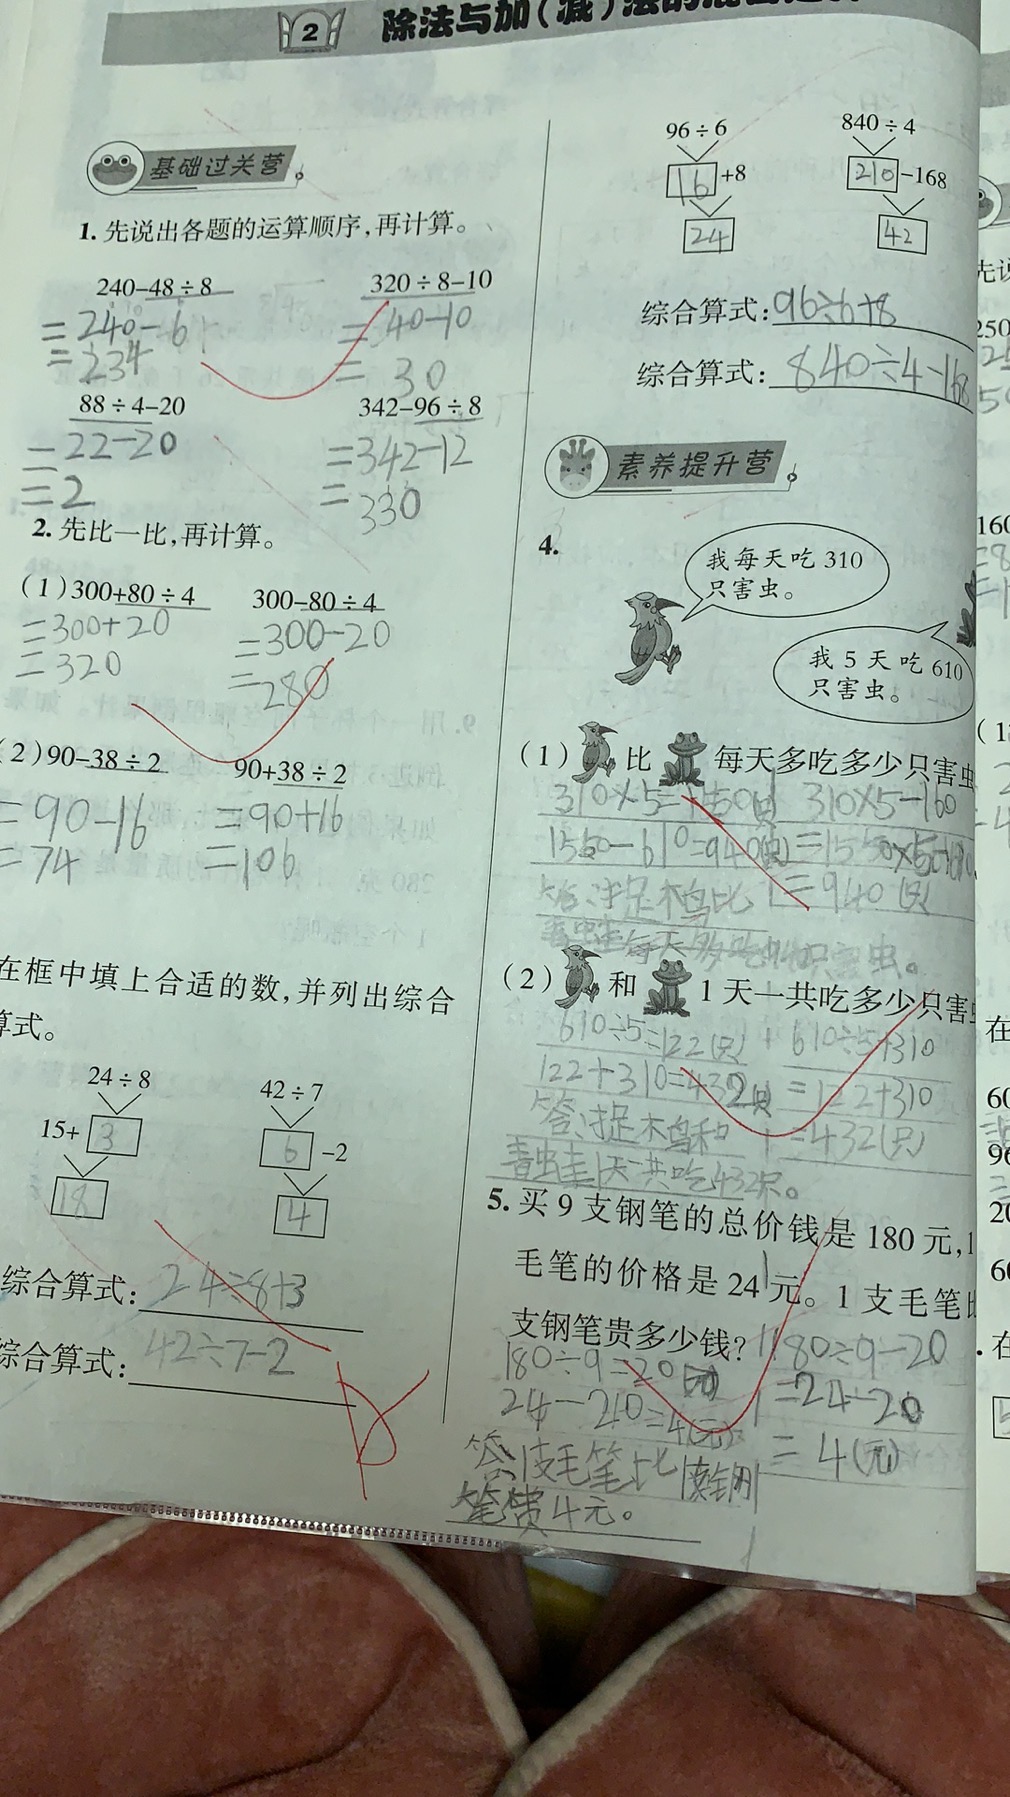 2 除法与加(减)法的混合运算
基础过关营
1. 先说出各题的运算顺序,再计算。
240-48÷8 320÷8-10
=240-6 =40-10
=234 =30
88÷4-20 342-96÷8
=22-20 =342-12
=2 =330
2. 先比一比,再计算。
(1)300+80÷4 300-80÷4
=300+20 =300-20
=320 =280
(2)90-38÷2 90+38÷2
=90-16 =90+16
=74 =106
在框中填上合适的数,并列出综合
算式。
24÷8 42÷7
15+ 3 6 -2
18 4
综合算式: 24÷8+3
综合算式: 42÷7-2
96÷6 840÷4
16 +8 210 -168
24 42
综合算式: 96÷6+8
综合算式: 840÷4-168
素养提升营
4.
我每天吃 310
只害虫。
我 5 天吃 610
只害虫。
(1) 比 每天多吃多少只害虫
310×5=1550(只) 310×5-160
1550-610=940(只)
=940(只)
答:捉木鸟比
青虫圭每天多吃940只害虫。
(2) 和 1 天一共吃多少只害虫
610÷5=122(只) 610÷5+310
122+310=432只 =122+310
答:捉木鸟和 =432(只)
青虫圭1天一共吃432只。
5. 买 9 支钢笔的总价钱是 180 元,1
毛笔的价格是 24 元。1 支毛笔比
支钢笔贵多少钱? 180÷9-20
180÷9=20 =24-20
24-20=4(元) =4(元)
答:皮毛笔比
笔贵4元。